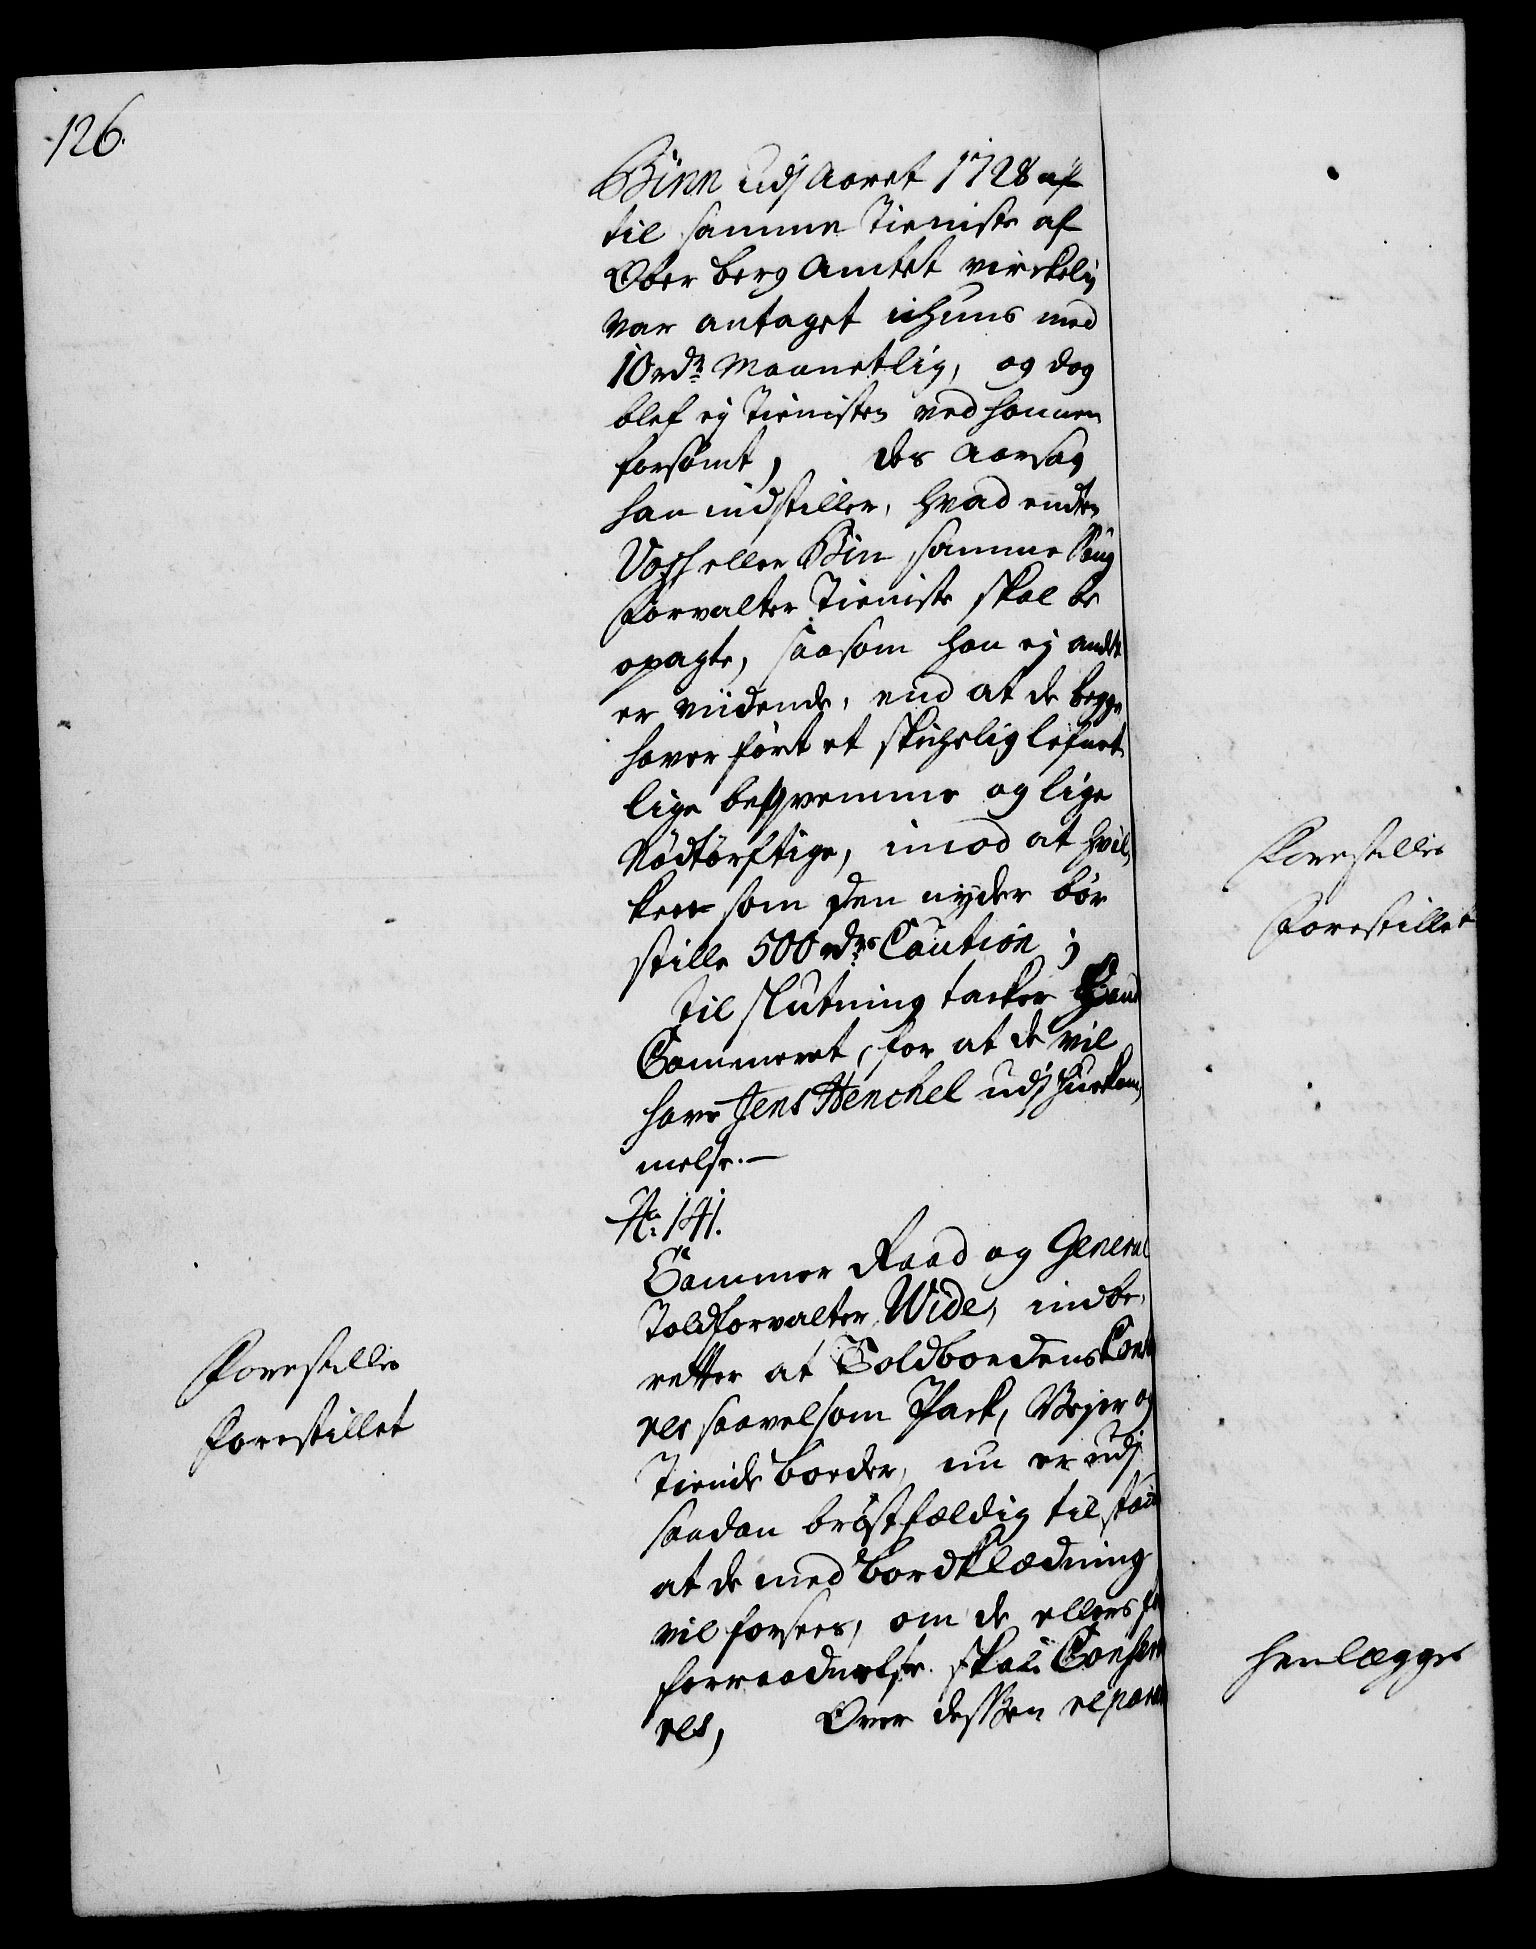 126.
Binn udj Aaret 1728
til samme Tieniste af
Ober berg Amtet virckelig
var antaget ickuns med
10 rdr Maanetlig, og dog
blef ej Tienisten ved hannem
forsømt, des Aarsag
han indstiller, hvad enten
Voss eller Bin samme
Forvalter Tieniste skal be
opagte, saasom han ej andet
er viidende, end at de begge
haver ført et skichelig lefnet
lige beqvemme og lige
Nødtørftige, imod at hvil,
ken som den nyder bør
stille 500 rdrs Caution;
til slutning tacker
Cammeret, for at de vil
have Jens Henchel udj hukom,
melse.—
No. 141.
Cammer Raad og General
Toldforvalter Wide, indbe,
retter at Toldboedens
res saavelsom Pack, Vejer og
Tiende boeder, nu er udj
saadan brøstfældig tilstand
at de med Bordklædning
vil forsees, om de ellers fra
forraadnelse skal Conserve
res, Over dessen repara
Forestilles
Forestillet
Forestilles
Forestillet
henlægges